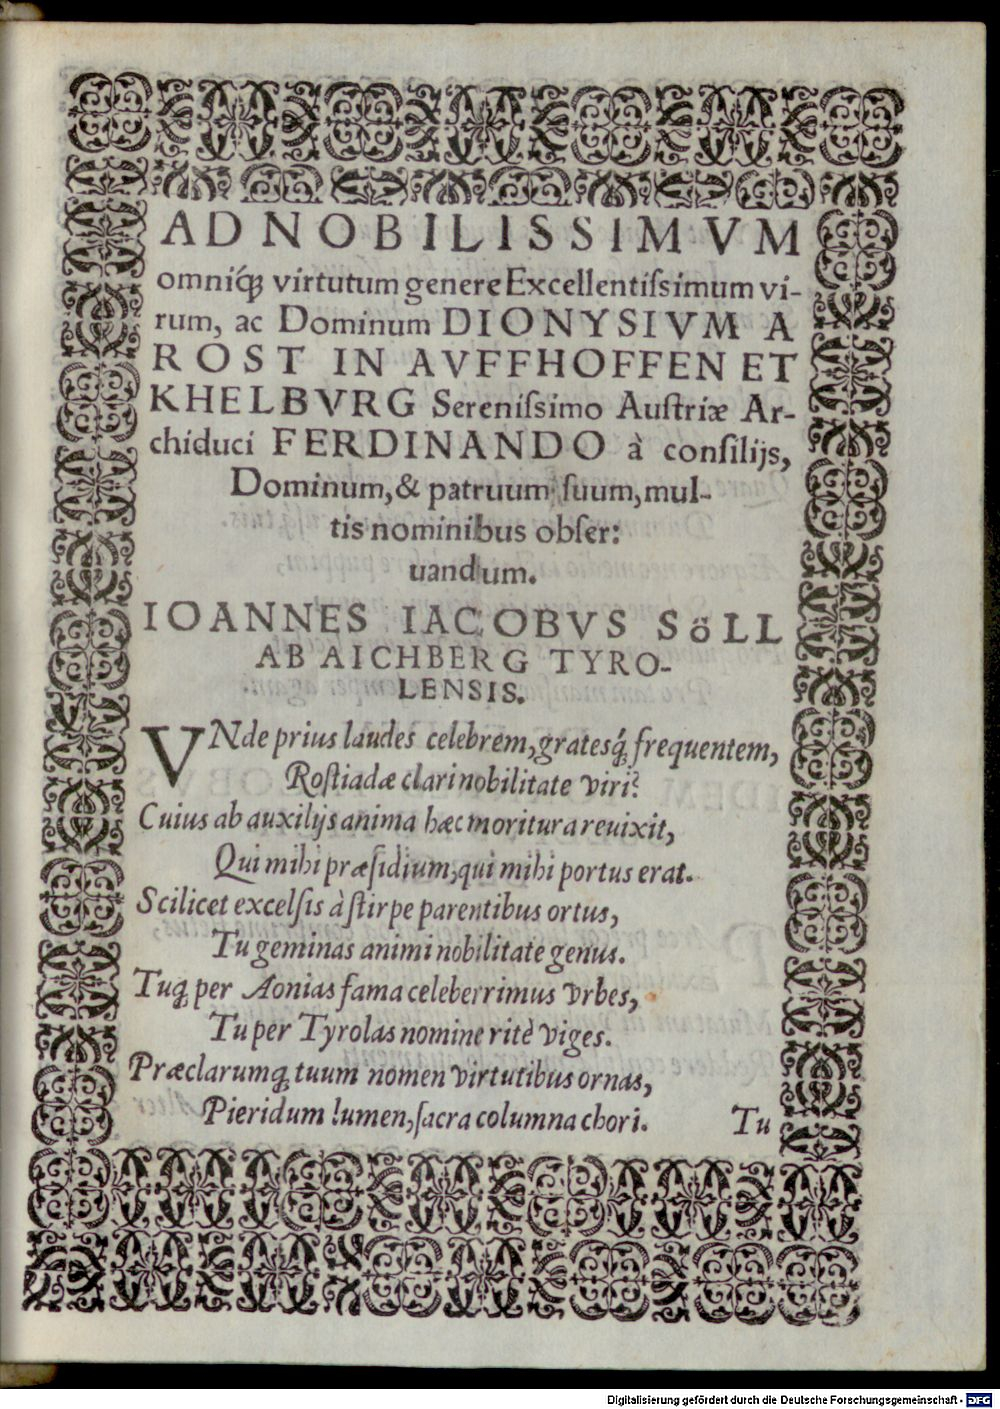 AD NOBILISSIMVM
omniq́; virtutum genere Excellentiſsimum vi-
rum, ac Dominum DIONYSIVM A
ROST IN AVFFHOFFEN ET
KHELBVRG Sereniſsimo Auſtriæ Ar-
chiduci FERDINANDO à conſilijs,
Dominum, & patruum ſuum, mul-
tis nominibus obſer:
uandum.
IOANNES IACOBVS SöLL
AB AICHBERG TYRO-
LENSIS.
VNde prius laudes celebrem, gratesq́; frequentem,
Roſtiadæ clari nobilitate viri?
Cuius ab auxilijs anima hæc moritura reuixit,
Qui mihi præſidium, qui mihi portus erat.
Scilicet excelſis à ſtirpe parentibus ortus,
Tu geminas animi nobilitate genus.
Tuq; per Aonias fama celeberrimus vrbes,
Tu per Tyrolas nomine ritè viges.
Præclarumq; tuum nomen virtutibus ornas,
Pieridum lumen, ſacra columna chori.
Tu
Digitalisierung gefördert durch die Deutsche Forschungsgemeinschaft - DFG